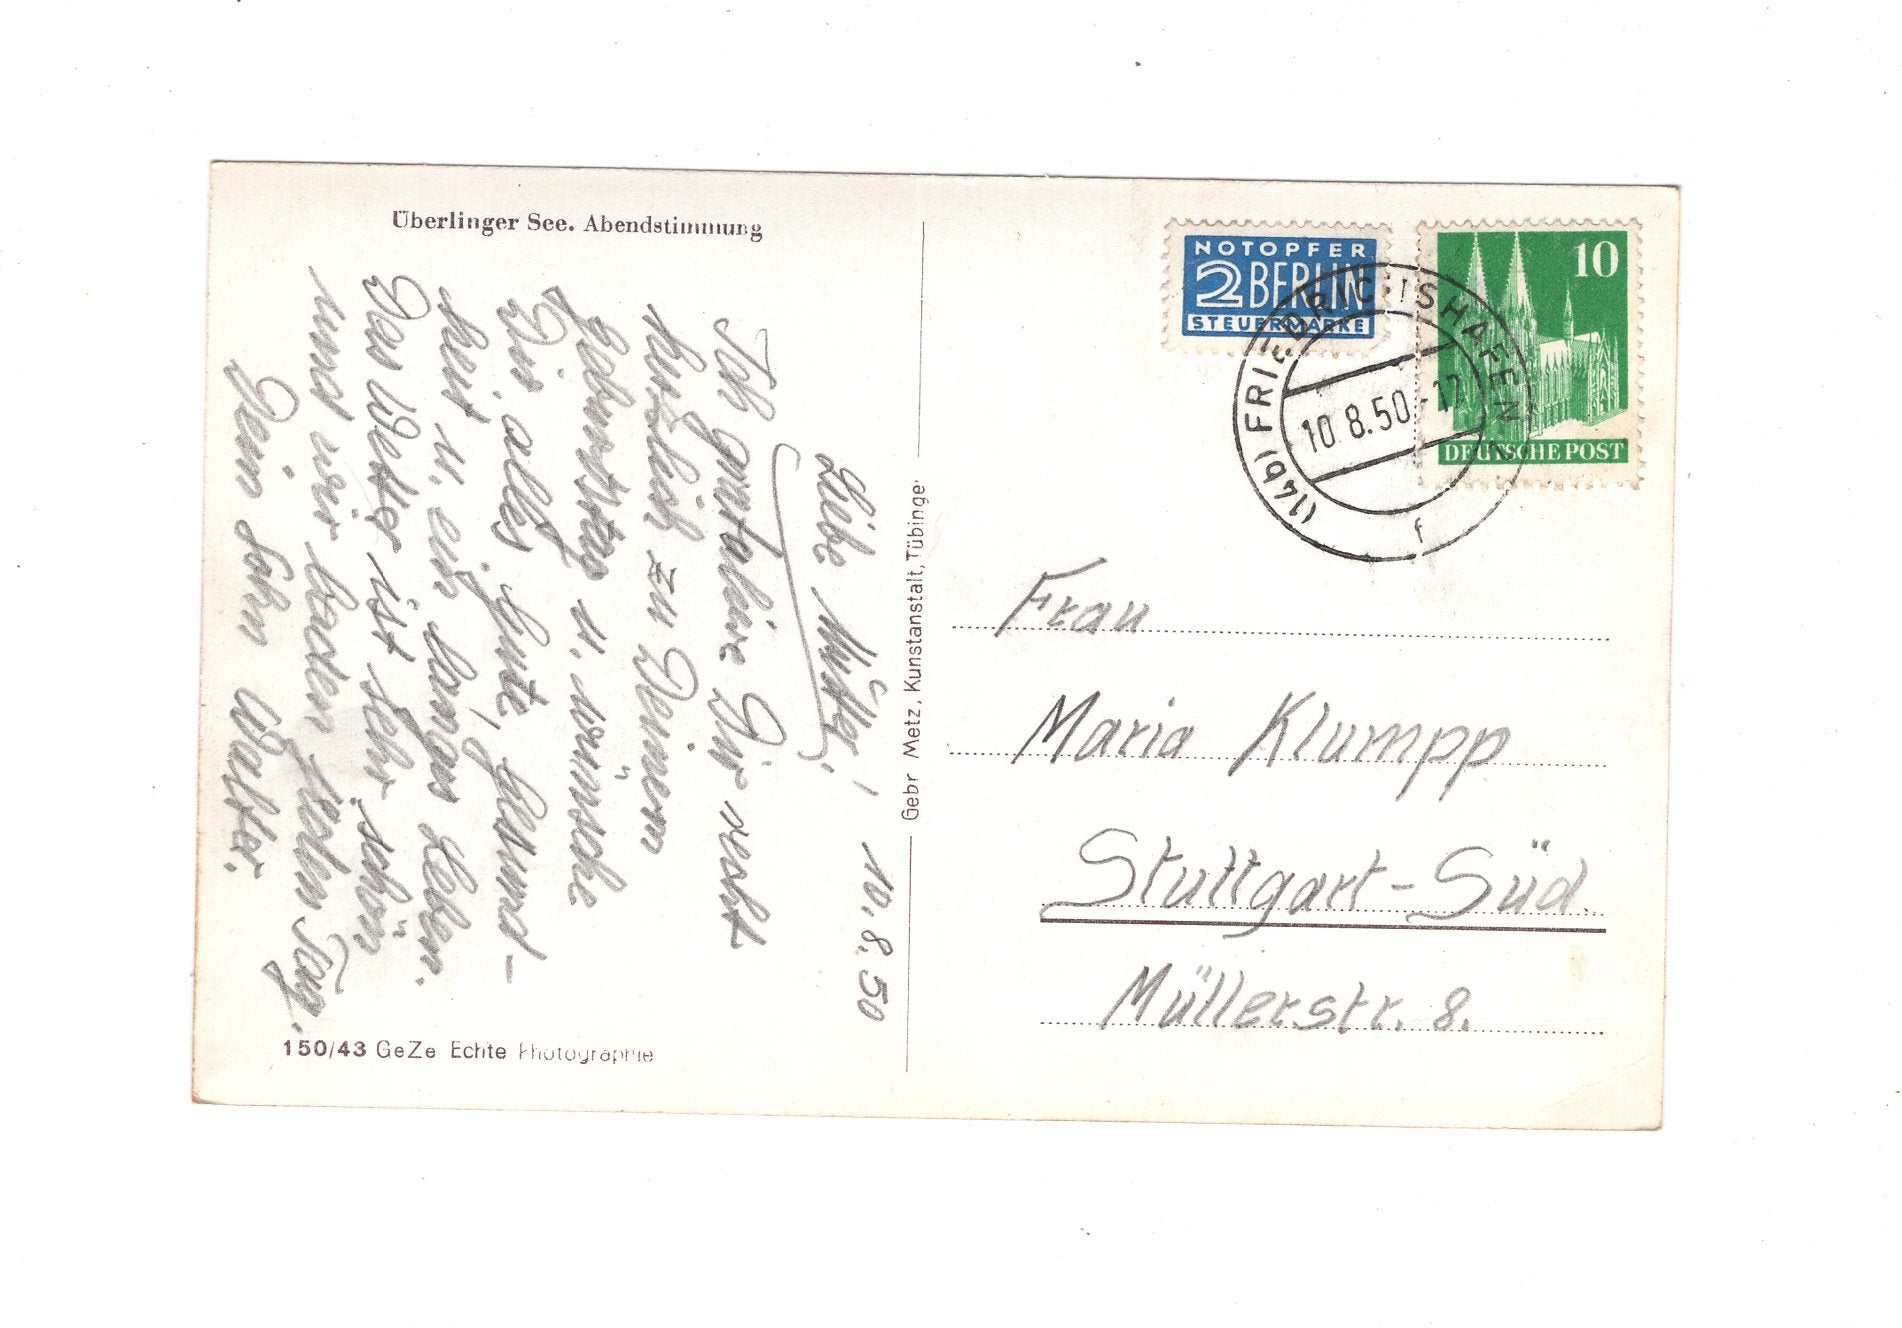 Überlinger See. Abendstimmung
10.8.50
Liebe Mutter!
Ich gratuliere Dir recht
herzlich zu Deinem
Geburtstag u. wünsche
Dir alles Gute, Gesund-
heit u. ein langes Leben.
Das Wetter ist sehr schön
und wir baden jeden Tag.
Dein Sohn Walter.
150/43 GeZe Echte Photographie
Gebr Metz, Kunstanstalt, Tübinge
NOTOPFER
2 BERLIN
STEUERMARKE
10
DEUTSCHE POST
(14b) FRIEDRICHSHAFEN
10.8.50-17
f
Frau
Maria Klumpp
Stuttgart-Süd.
Müllerstr. 8.